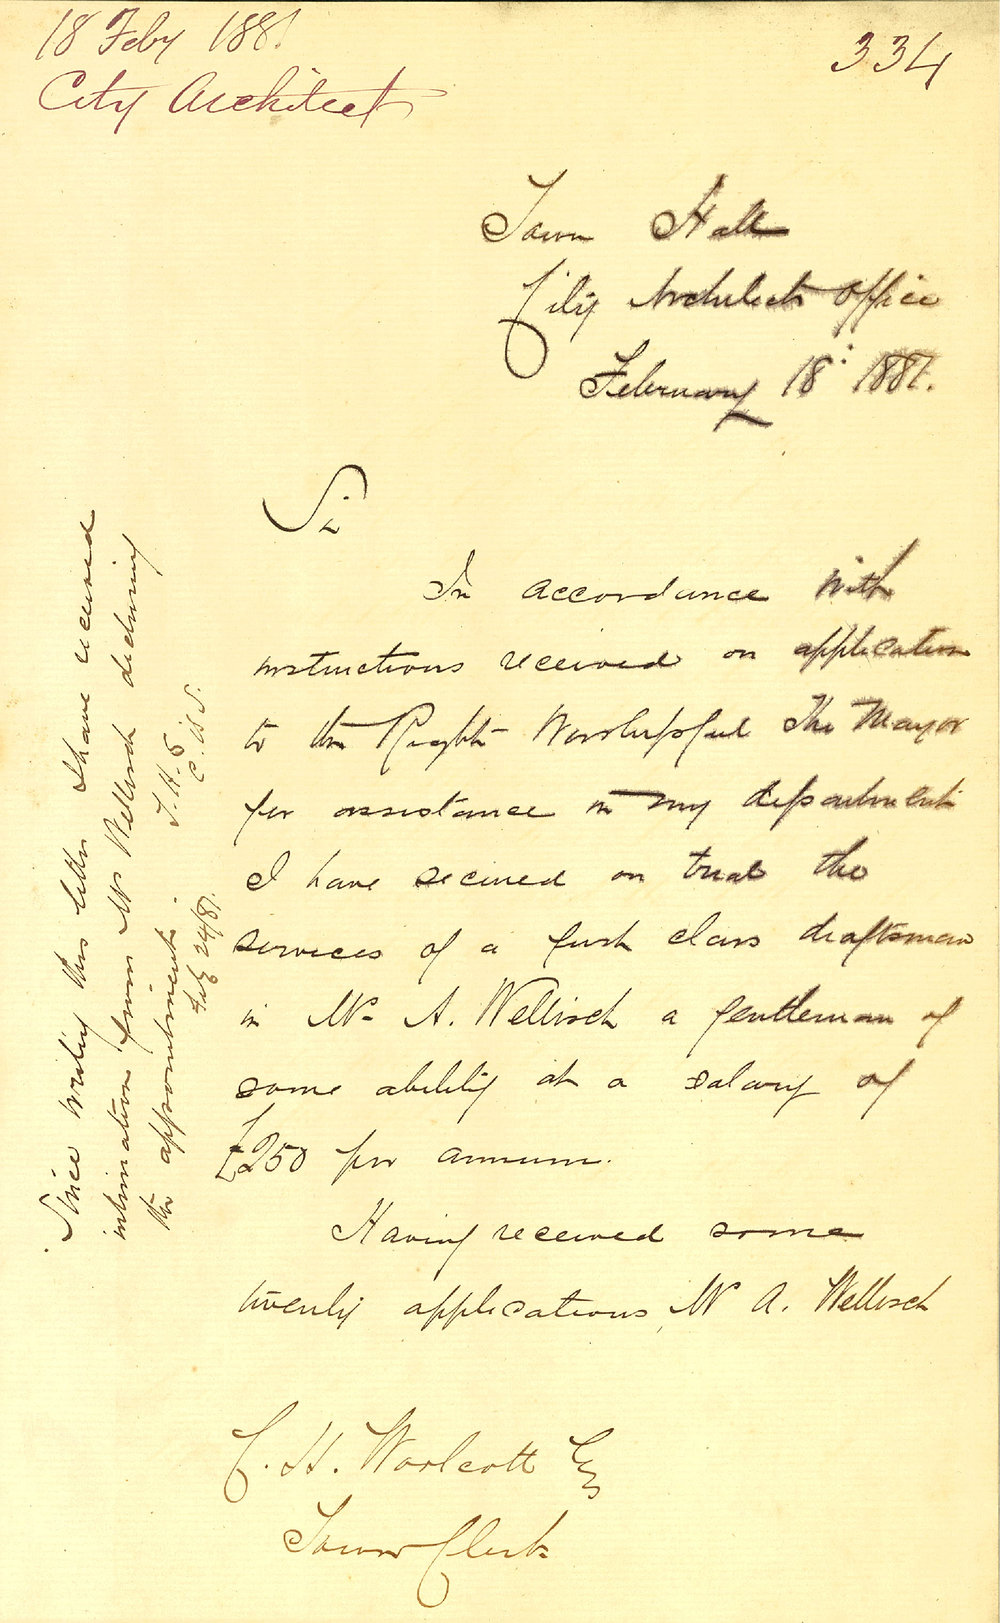 18 Feby 1881
City Architect
334
Town Hall
City Architects Office
February 18: 1881.
Sir
In accordance with
instructions received on application
to the Right Worshipful The Mayor
for assistance in my department
I have secured on trial the
services of a first class draftsman
in Mr A. Wellisch a gentleman of
some ability at a salary of
£250 per annum.
Having received some
twenty applications, Mr A. Wellisch
C. H. Woolcott Esq
Town Clerk
Since writing this letter I have received
intimation from Mr Wellisch declining
the appointment. T. H. S
Feb 24/81. C. W S.